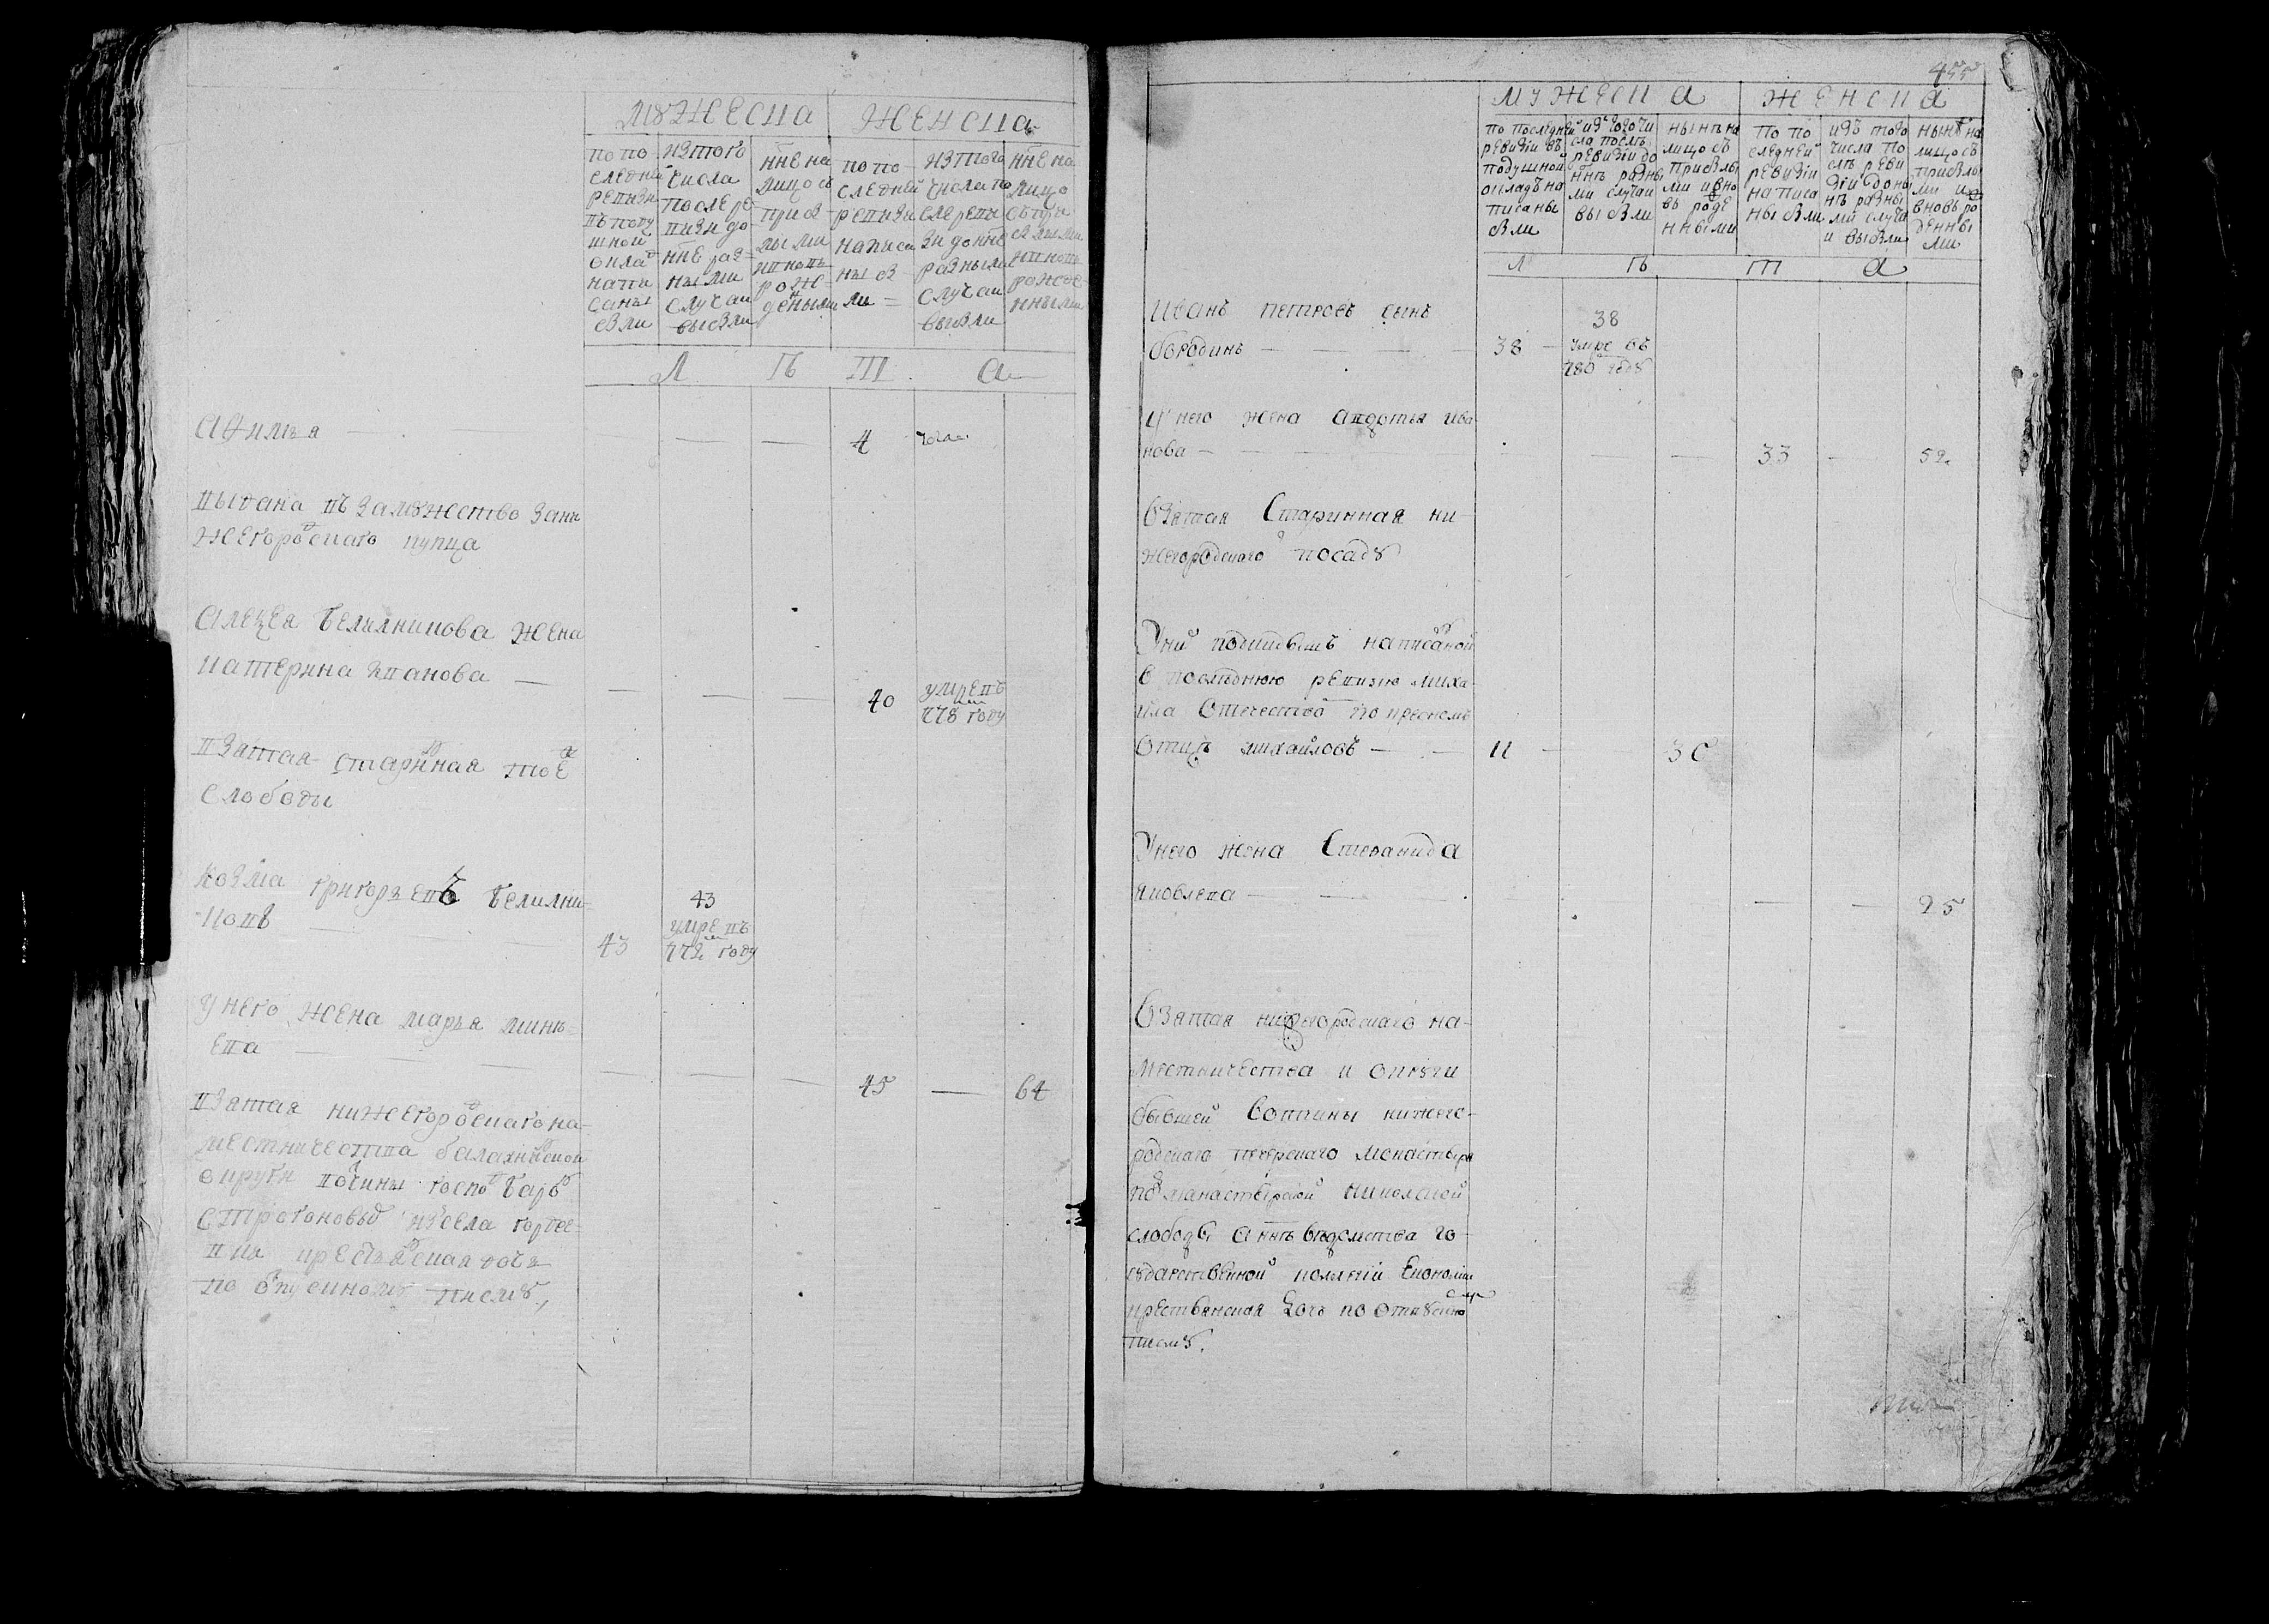 мужеска женска
по по
следней
ревизи
въ поду
шной
окла
напи
саны
были
из того
числа
после ре-
визи до-
нне раз-
ными
случаи
выбыли
нне на
лицо съ
при б
лыми
рож-
деными
по по
следней
ревизи
написа
ны б
ли
из того
числа по
сле реви
зи до нне
разными
случаи
выбыли
нне на
лицо
съ при
б лыми
рожде
нными
Л ѣ т а
Афимья 4
выдана въ замужество за ни
жегородскаго купца
Алеѯея белилникова жена
катерина иванова 40 умре въ
778 году
взятая старинная тоє
слободы
козма григорьевъ белилни-
ковъ 43 43
умре въ
772 году
у него жена марья мине-
ева 45 64
взятая нижегородскаго на-
местничества балахнинскои
округи вотчины господъ баро
строгоновыхъ из села городе-
цка крестьянская дочь
по отпускному писму,
455
мужеска женска
по последней
ревизіи въ
подушной
окладъ на
писаны
были
изъ того чи
сла послѣ
ревизіи до
ннѣ разны
ми случаи
выбыли
нынѣ на
лицо съ
прибылы
ми и вно
въ рожде
нными
по по
следней
ревизіи
написа
ны были
изъ того
числа по
слѣ реви
зіи до ны
нѣ разны
ми случа
и выбыли
нынѣ на
лицо съ
прибылы
ми и
вновь ро
жденны
ми
Л ѣ т а
иванъ петровъ сынъ
бородинъ 38 38
умре въ
780 году
у него жена авдотья ива
нова 33 52
взятая старинная ни-
жегородскаго посаду
у ни подкидышъ написаной
в послѣднюю ревизію миха-
ила отечество по крестномъ
отцѣ михайловъ 11 30
у него жена степанида
яковлева 25
взятая нижегородскаго на-
местничества и округи
бывшей вотчины нижего-
родскаго печерскаго монастыря
подманастырской никольской
слободы а ннѣ ведомства го-
сударственной колегіи економіи
крестьянская дочь по отпускно
писму.